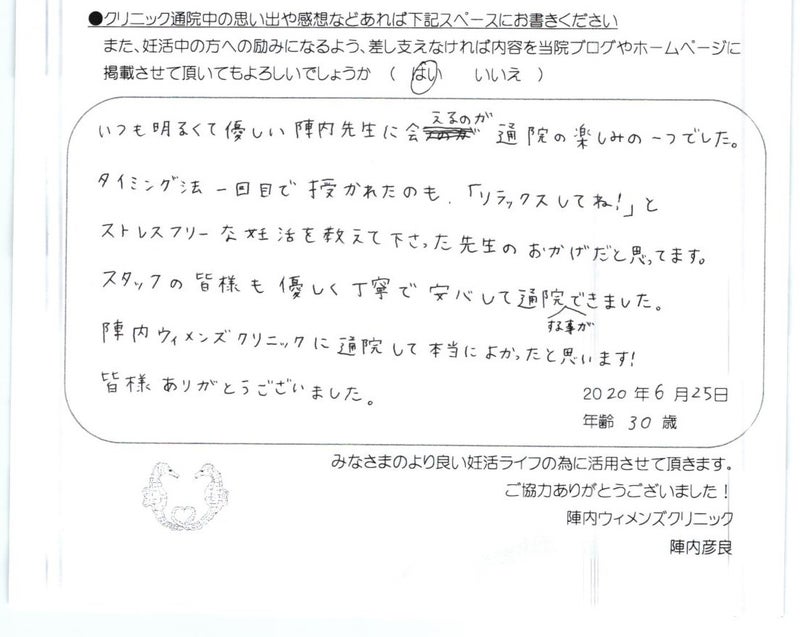 ●クリニック通院中の思い出や感想などあれば下記スペースにお書きください
また、妊活中の方への励みになるよう、差し支えなければ内容を当院ブログやホームページに
掲載させて頂いてもよろしいでしょうか （ はい いいえ ）
いつも明るくて優しい陣内先生に会えるのが通院の楽しみの一つでした。
タイミング法一回目で授かれたのも、「リラックスしてね!」と
ストレスフリーな妊活を教えて下さった先生のおかげだと思ってます。
スタッフの皆様も優しく丁寧で安心して通院する事ができました。
陣内ウィメンズクリニックに通院して本当によかったと思います!
皆様ありがとうございました。
2020年6月25日
年齢 30 歳
みなさまのより良い妊活ライフの為に活用させて頂きます。
ご協力ありがとうございました！
陣内ウィメンズクリニック
陣内彦良